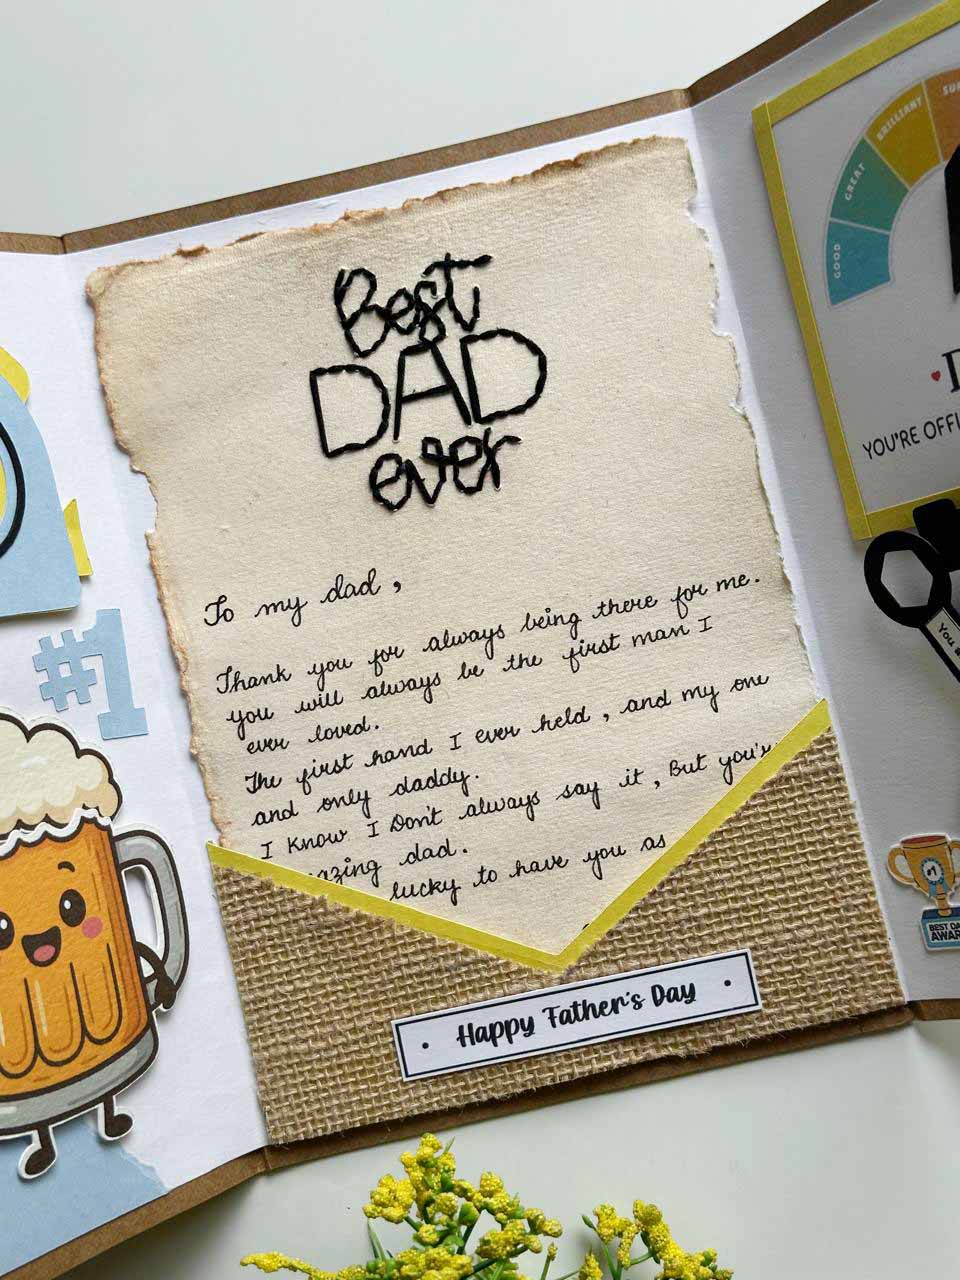 Best
DAD
ever
To my dad,
Thank you for always being there for me.
you will always be the first man I
ever loved.
The first hand I ever held, and my one
and only daddy.
I Know I Don't always say it, But you'r
azing dad.
lucky to have you as
Happy Father's Day
#1
GOOD
GREAT
BRILLIANT
SU
YOU'RE OFFI
You a
#1
BEST DA
AWAR